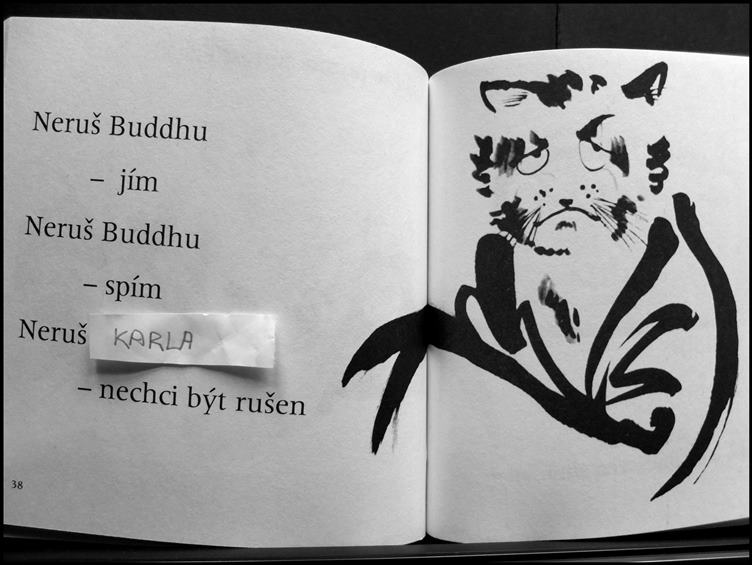 Neruš Buddhu
– jím
Neruš Buddhu
– spím
Neruš KARLA
– nechci být rušen
38